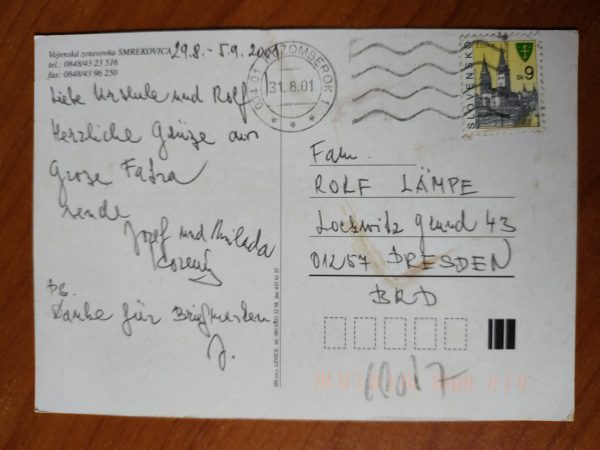 Vojenská zotavovňa SMREKOVICA
tel.: 0848/43 23 516
fax: 0848/43 96 250
29.8. - 5.9. 2001
034 01 RUŽOMBEROK 1
31.8.01
SLOVENSKO
9
Sk
Liebe Urshule und Rolf
Herzliche Grüze aus
Groze Fatra
sende
Jozef und Milada
PS.
Danke für Briefmarken
J.
Fam.
ROLF LÄMPE
Loschwitz Grund 43
01257 DRESDEN
BRD